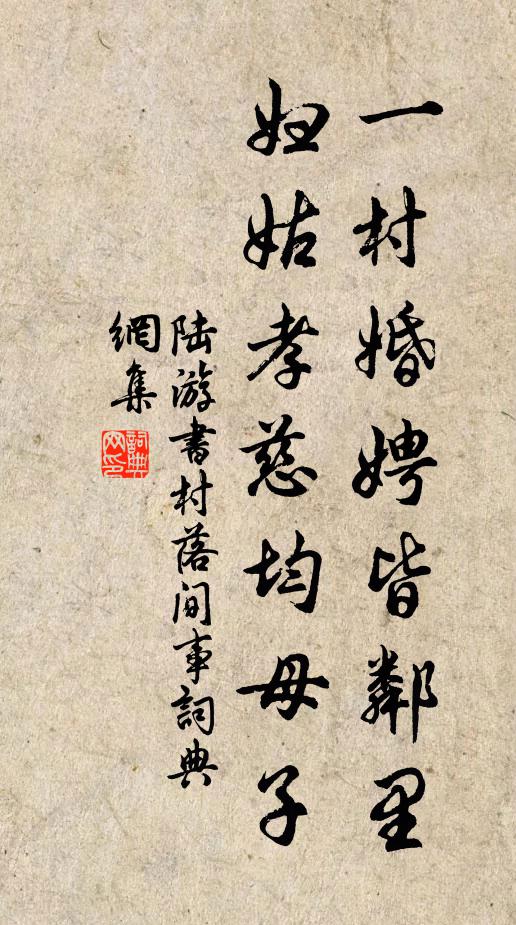 一村婚娉皆鄰里
妇姑孝慈均母子
陆游书村落间事詞典
網集
詞典
网印